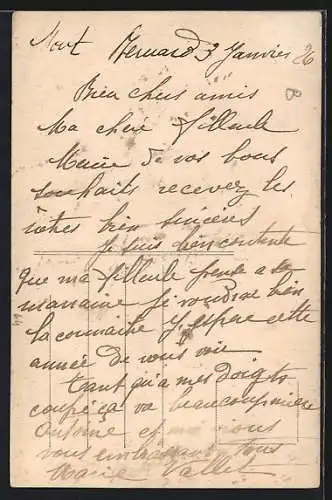 Mont Bernard 3 Janvier 26
Bien chers amis
Ma chère filleule
Merci de vos bons
souhaits recevez les
notres bien sincères
Je suis bien contente
que ma filleule pense a sa
marraine je voudrai bien
la connaitre j'espere cette
année de vous voir
tant qu'a mes doigts
coupé ça va beaucoup mieux
Antoine et moi nous
vous embrassons tous
Marie Vallet